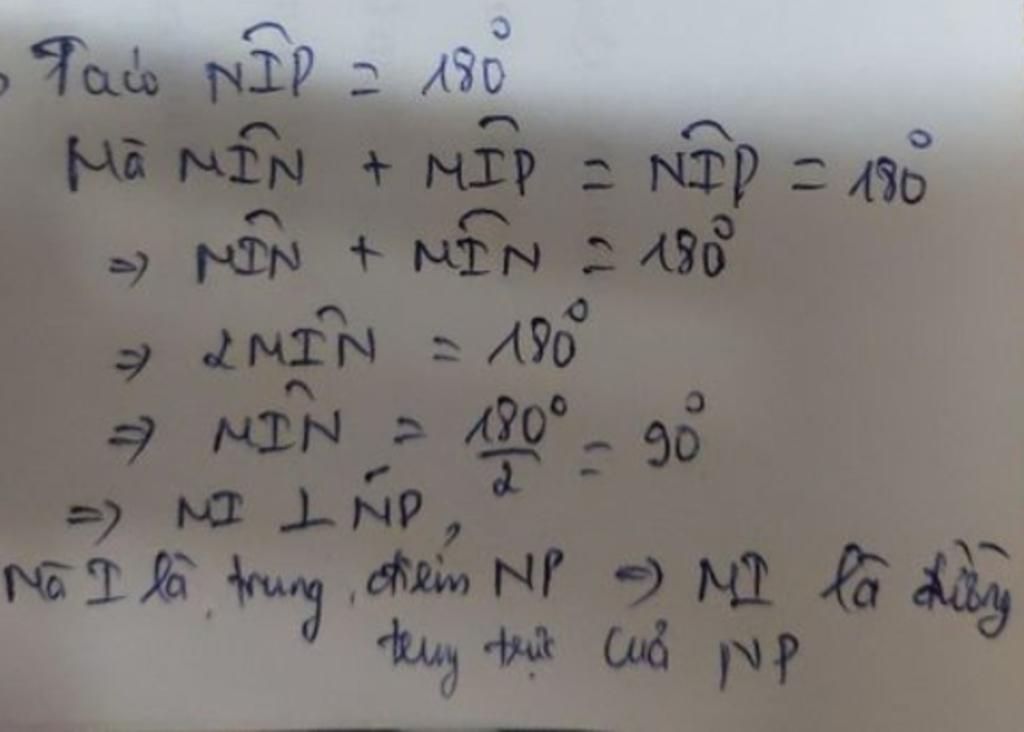 Ta có NÎP = 180°
Mà MÎN + MÎP = NÎP = 180°
=> MÎN + MÎN = 180°
=> 2MÎN = 180°
=> MÎN = 180°/2 = 90°
=> MI ⊥ NP,
Mà I là trung điểm NP => MI là đường
trung trực của NP